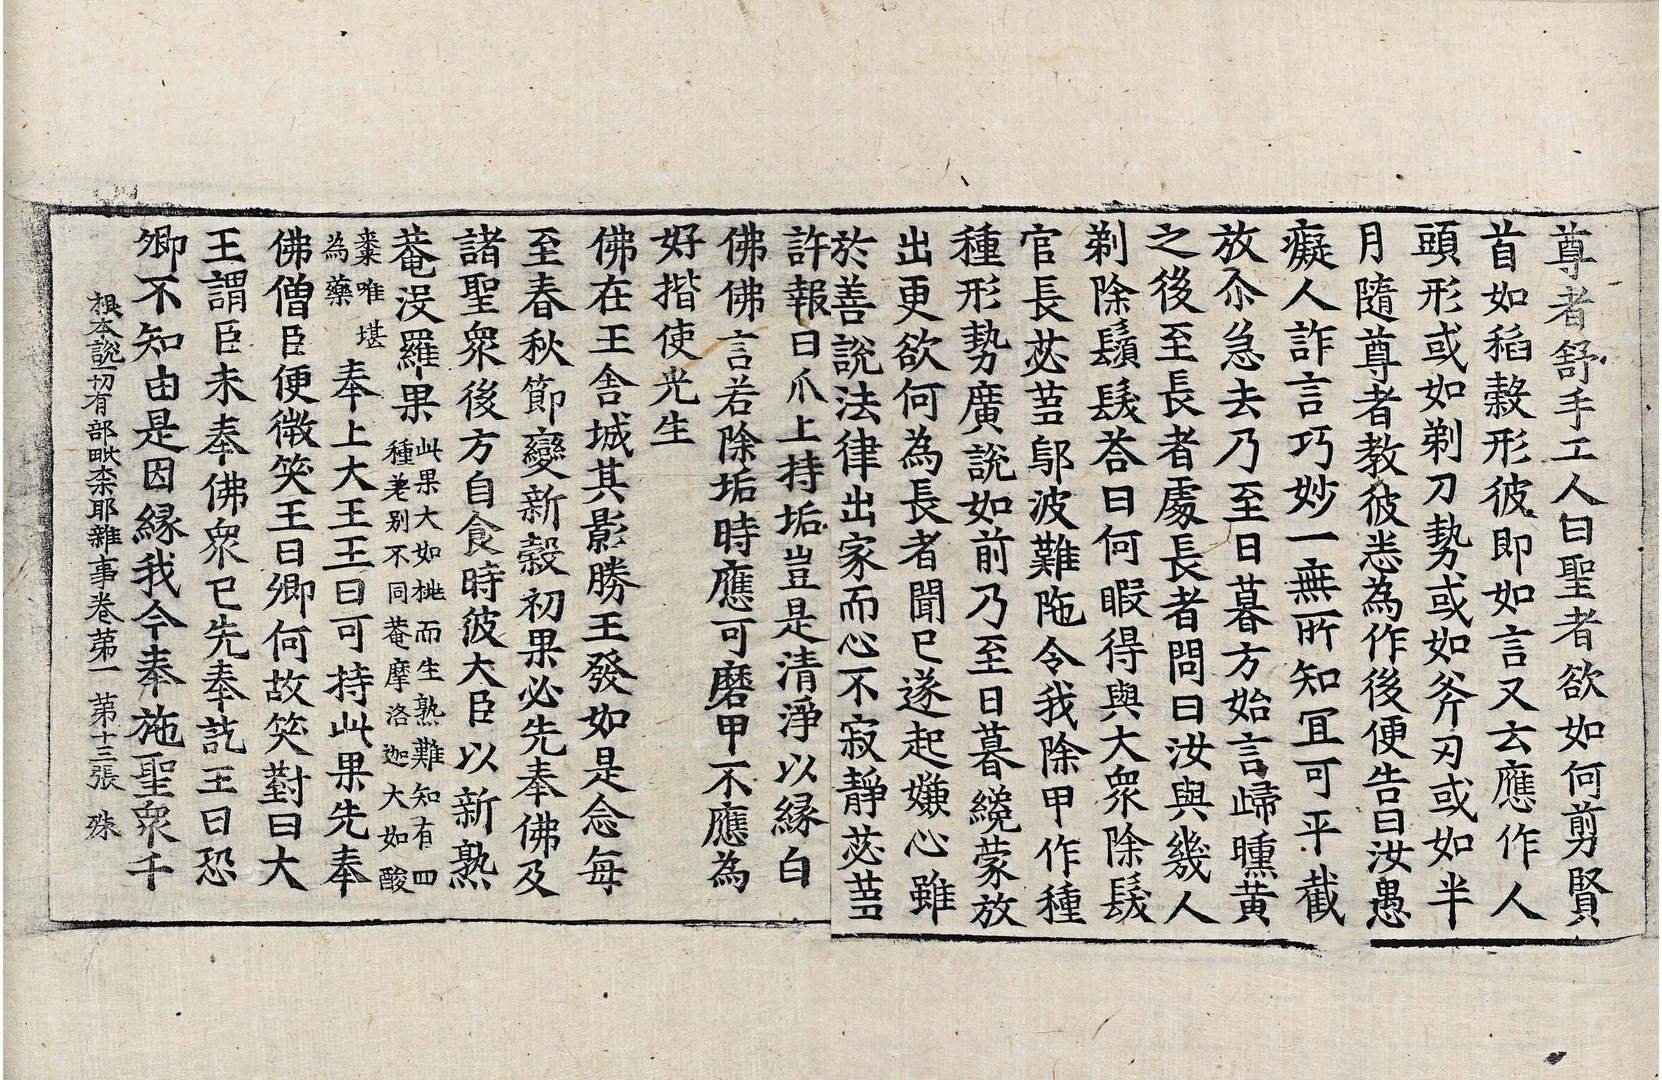 尊者舒手工人曰聖者欲如何剪賢
首如稻穀形彼即如言又云應作人
頭形或如剃刀勢或如斧刃或如半
月隨尊者教彼悉為作後便告曰汝愚
癡人詐言巧妙一無所知冝可平截
放尒急去乃至日暮方始言歸曛黄
之後至長者處長者問曰汝與幾人
剃除鬚髮荅曰何暇得與大衆除髮
官長苾芻鄔波難陁令我除甲作種
種形勢廣説如前乃至日暮纔蒙放
出更欲何為長者聞已遂起嫌心雖
於善説法律出家而心不寂静苾芻
許報曰爪上持垢豈是清淨以緣白
佛佛言若除垢時應可磨甲不應為
好揩使光生
佛在王舍城其影勝王發如是念每
至春秋節變新穀初果必先奉佛及
諸聖衆後方自食時彼大臣以新熟
菴没羅果此果大如桃而生熟難知有四
種差别不同菴摩洛迦大如酸
棗唯堪
為藥奉上大王王曰可持此果先奉
佛僧臣便微笑王曰卿何故笑對曰大
王謂臣未奉佛衆已先奉訖王曰恐
卿不知由是因緣我今奉施聖衆千
根本説一切有部毗奈耶雜事卷第一 第十三張 殊